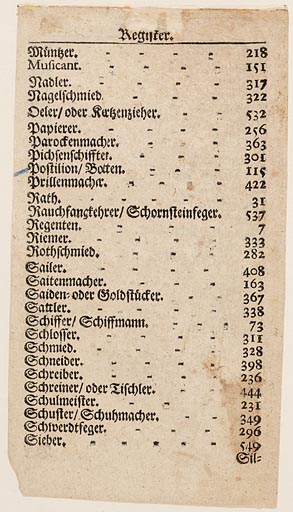 Register.
Müntzer. - - - - 218
Musicant. - - - - 151
Nadler. - - - - 317
Nagelschmied. - - - 322
Oeler/ oder Kertzenzieher. - - 532
Papierer. - - - - 256
Parockenmacher. - - - 363
Pichsenschiffter. - - - 301
Postilion/ Botten. - - - 115
Prillenmacher. - - - 422
Rath. - - - - 31
Rauchfangkehrer/ Schornsteinfeger. 537
Regenten. - - - - 7
Riemer. - - - - 333
Rothschmied. - - - 282
Sailer. - - - - 408
Saitenmacher. - - - 163
Saiden- oder Goldstücker. - - 367
Sattler. - - - - 338
Schiffer/ Schiffmann. - - 73
Schlosser. - - - - 311
Schmied. - - - - 328
Schneider. - - - - 398
Schreiber. - - - - 236
Schreiner/ oder Tischler. - - 444
Schulmeister. - - - 231
Schuster/ Schuhmacher. - - 349
Schwerdtfeger. - - - 296
Sieber. - - - - 549
Sil-